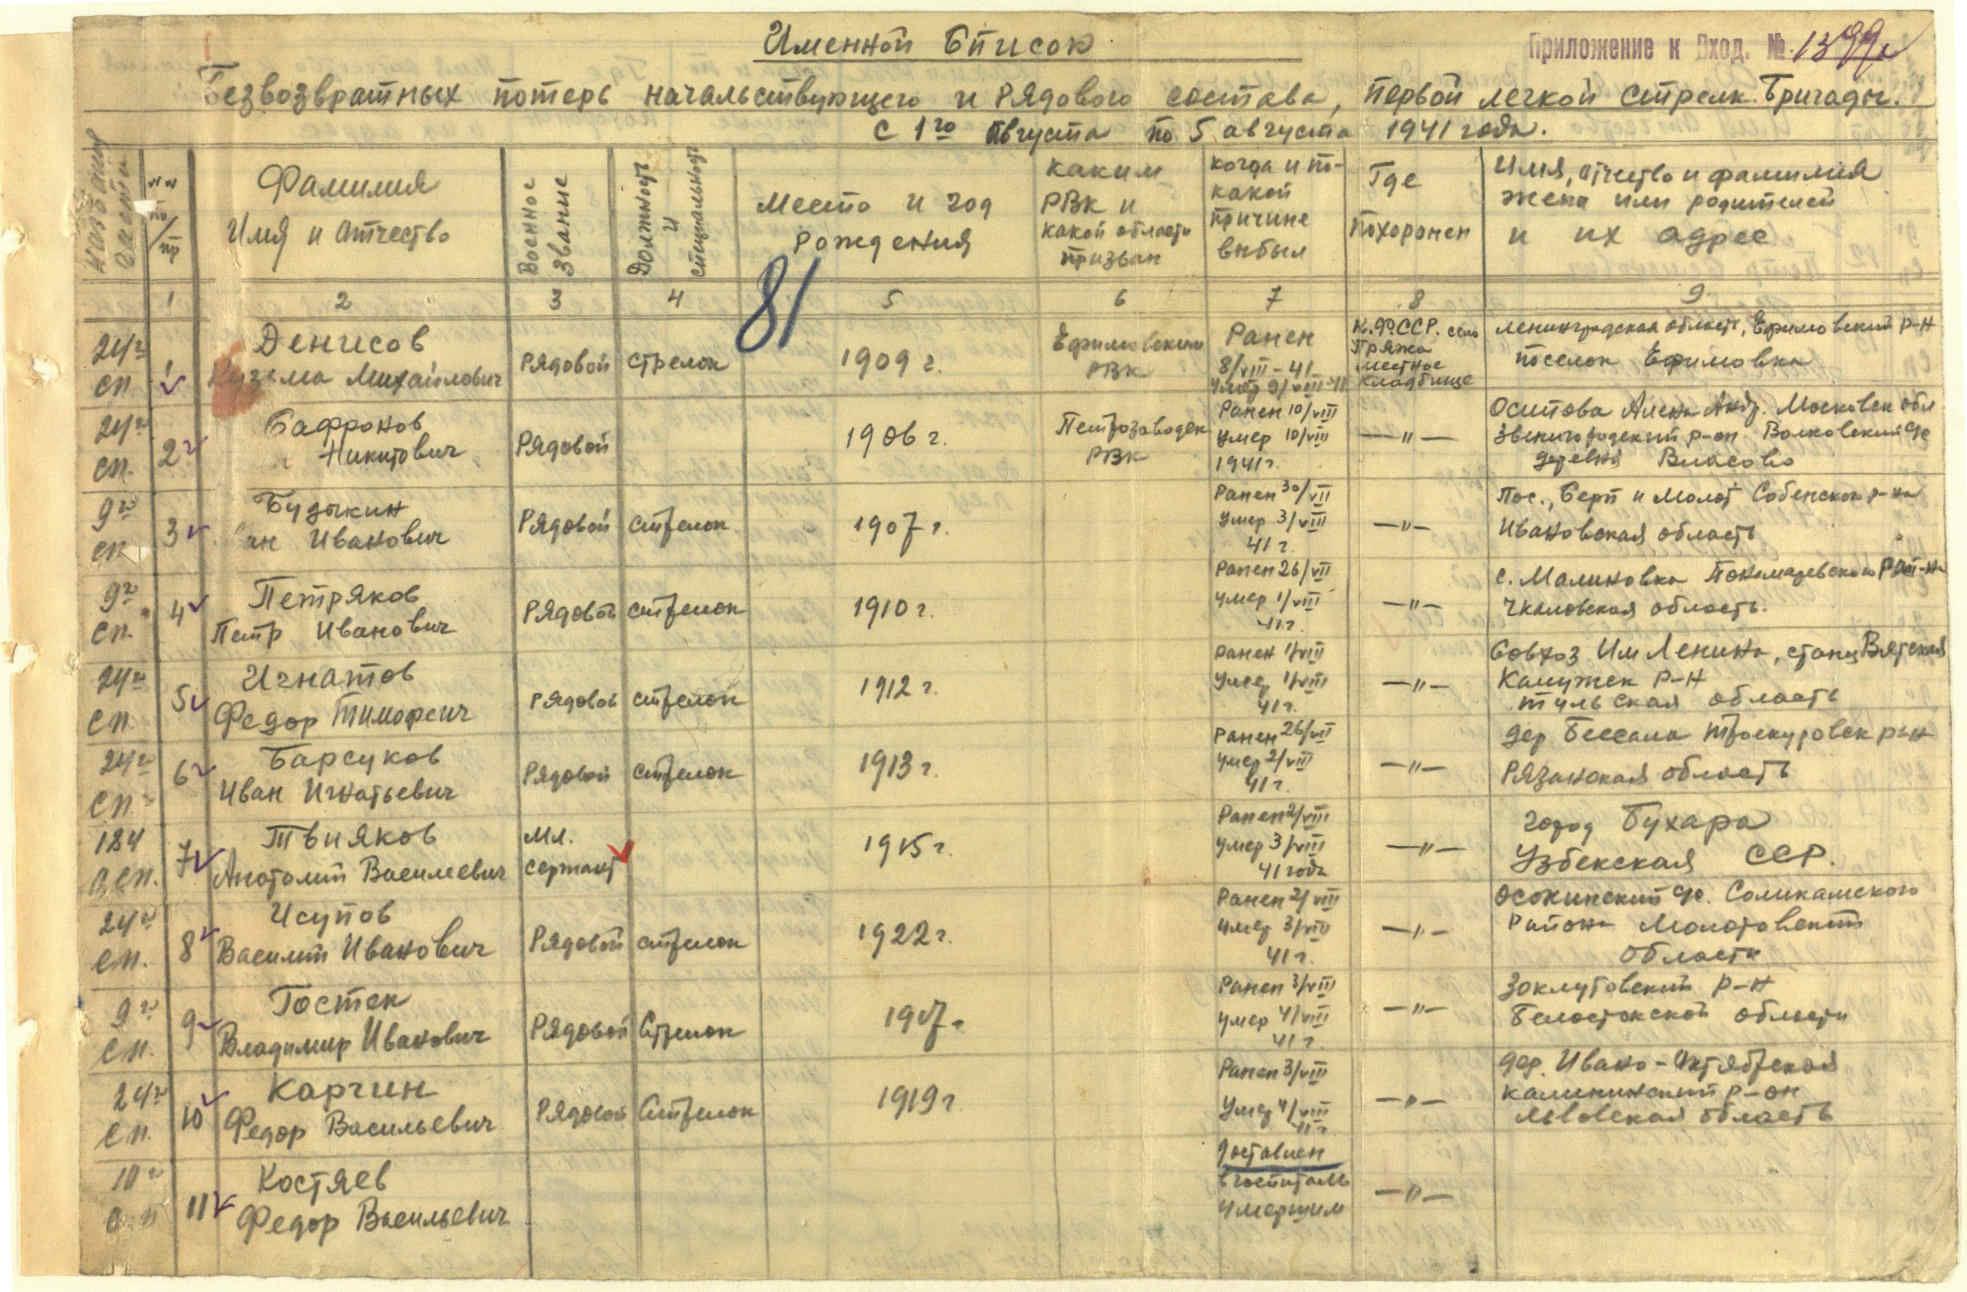 Именной Список
Приложение к Вход. №
Безвозвратных потерь начальствующего и Рядового состава, первой легкой стрелк. Бригады.
с 1го Августа по 5 августа 1941 года.
Название части
№№ по/пр
Фамилия
Имя и Отчество
Военное звание
Должность и специальность
Место и год
рождения
каким
РВК и
какой области
призван
когда и по-
какой
причине
выбыл
Где
Похоронен
Имя, отчество и фамилия
жены или родителей
и их адрес
1 2 3 4 5 6 7 8 9
81
24й
сп.
1
Денисов
Кузьма Михайлович
Рядовой
стрелок
1909 г.
Ефимовским
РВК
Ранен
8/VIII-41
Умер 9/VIII-41
К.Ф.ССР. село
Пряжа
местное
кладбище
Ленинградская область, Ефимовский р-н
поселок Ефимовка
24й
сп.
2
Сафронов
Никитович
Рядовой
1906 г.
Петрозаводск
РВК
Ранен 10/VIII
Умер 10/VIII
1941г.
—"—
Осипова Алена Андр. Московск обл
Звенигородский р-он Волковский
деревня Власово
9й
сп
3
Будыкин
Иванович
Рядовой
стрелок
1907 г.
Ранен 30/VII
Умер 3/VIII
41 г.
—"—
Пос., Серп и Молот Р-на
Ивановская область
9й
сп.
4
Петряков
Петр Иванович
Рядовой
стрелок
1910 г.
Ранен 26/VII
умер 1/VIII
41г.
—"—
с. Малиновка Пономаревского
Чкаловская область.
24й
сп.
5
Игнатов
Федор Тимофеич
Рядовой
стрелок
1912 г.
Ранен 1/VIII
Умер 1/VIII
41г.
—"—
Совхоз Им Ленина, станц Вятская
Калужск Р-Н
тульская область
24й
сп.
6
Барсуков
Иван Игнатьевич
Рядовой
стрелок
1913 г.
Ранен 26/VII
умер 2/VIII
41г.
—"—
дер
Рязанская область
184
7
Твияков
Анатолий Василиевич
Мл.
сержант
1915 г.
Ранен 2/VIII
умер 3/VIII
41 года
—"—
город Бухара
Узбекская ССР.
24й
сп.
8
Исупов
Василий Иванович
Рядовой
стрелок
1922 г.
Ранен 2/VIII
умер 3/VIII
41 г.
—"—
Осокинский Соликамского
Района Молотовский
Области
9й
сп.
9
Гостек
Владимир Иванович
Рядовой
Стрелок
1907г.
Ранен 3/VIII
умер 4/VIII
41 г.
—"—
Р-Н
Белостокской области
24й
сп.
10
Карчин
Федор Васильевич
Рядовой
Стрелок
1919 г.
Ранен 3/VIII
Умер 4/VIII
41г.
—"—
дер. Ивано-Октябрской
Калининский р-он
Львовская область
10й
11
Костяев
Федор Васильевич
доставлен
в госпиталь
умершим
—"—